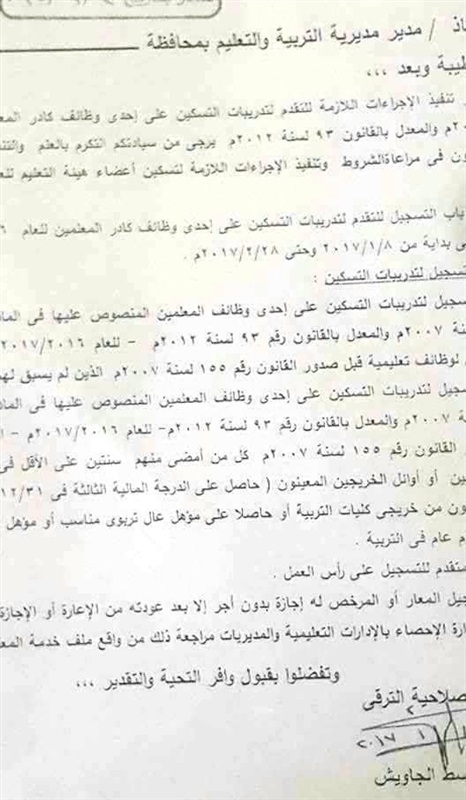 / مدير مديرية التربية والتعليم بمحافظة
طيبة وبعد ،،،
تنفيذ الإجراءات اللازمة للتقدم لتدريبات التسكين على إحدى وظائف كادر
٢م والمعدل بالقانون ٩٣ لسنة ٢٠١٢م يرجى من سيادتكم التكرم بالعلم
ون فى مراعاة الشروط وتنفيذ الإجراءات اللازمة لتسكين أعضاء هيئة التعليم
باب التسجيل للتقدم لتدريبات التسكين على إحدى وظائف كادر المعلمين للعام
بداية من ٢٠١٧/١/٨ وحتى ٢٠١٧/٢/٢٨م .
تسجيل لتدريبات التسكين :
سجيل لتدريبات التسكين على إحدى وظائف المعلمين المنصوص عليها فى
نة ٢٠٠٧م والمعدل بالقانون رقم ٩٣ لسنة ٢٠١٢م - للعام ٢٠١٧/٢٠١٦
لوظائف تعليمية قبل صدور القانون رقم ١٥٥ لسنة ٢٠٠٧م الذين لم يسبق لهم
سجيل لتدريبات التسكين على إحدى وظائف المعلمين المنصوص عليها فى
٢٠٠٧م والمعدل بالقانون رقم ٩٣ لسنة ٢٠١٢م- للعام ٢٠١٧/٢٠١٦م -
القانون رقم ١٥٥ لسنة ٢٠٠٧م كل من أمضى منهم سنتين على الأقل فى
ين أو أوائل الخريجين المعينون ( حاصل على الدرجة المالية الثالثة فى ١٢/٣١
ون من خريجى كليات التربية أو حاصلا على مؤهل عال تربوى مناسب أو مؤهل
م عام فى التربية .
ستقدم للتسجيل على رأس العمل .
جيل المعار أو المرخص له إجازة بدون أجر إلا بعد عودته من الإعارة أو الإجازة
ارة الإحصاء بالإدارات التعليمية والمديريات مراجعة ذلك من واقع ملف خدمة
وتفضلوا بقبول وافر التحية والتقدير ،،،
صلاحية الترقى
٢٠١٧
سط الجاويش